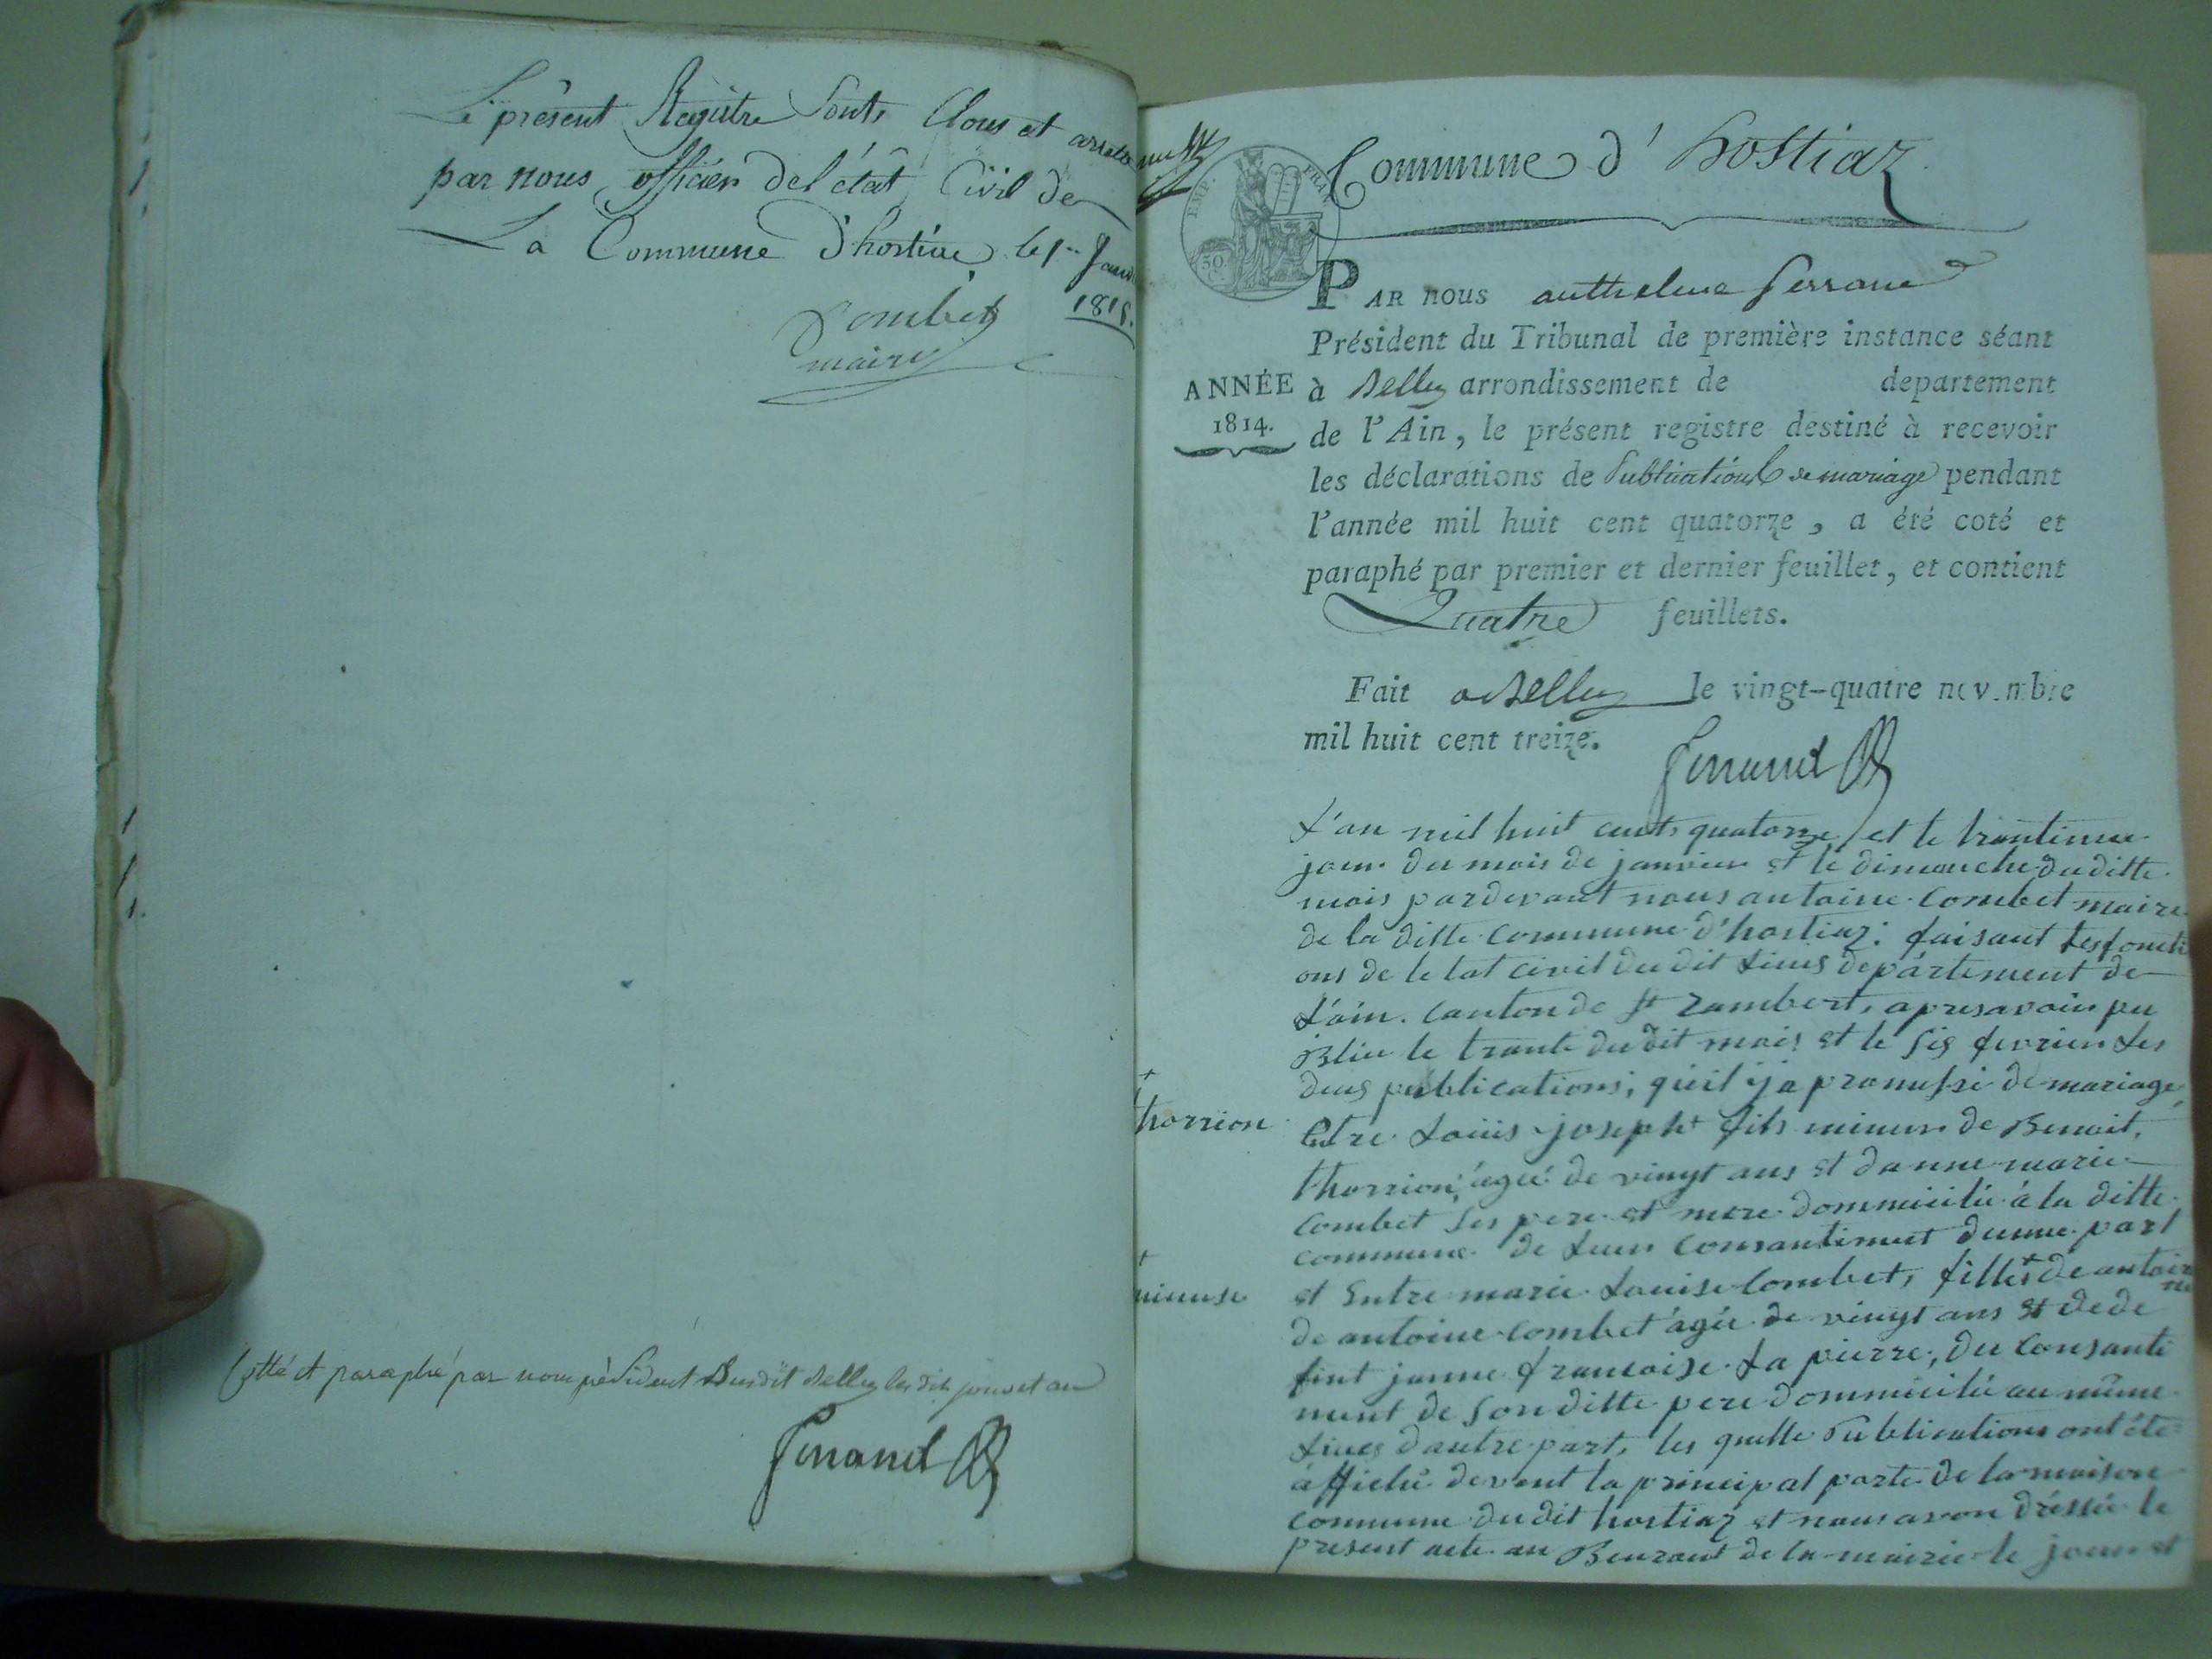 Le présent Registre sonts Clous et arreté
par nous officier del'état Civil de
La Commune D'hostiae le 1er Janv
1815.
Combet
maire
Cotté et paraphé par nous président Susdit Belley lesdits jour et an
Ferrand
Commune d'hostiaz
EMP. FRAN.
50. C.
PAR nous anthelme ferrand
Président du Tribunal de première instance séant
ANNÉE
1814.
à Belley arrondissement de departement
de l'Ain, le présent registre destiné à recevoir
les déclarations de Publications de mariage pendant
l'année mil huit cent quatorze, a été coté et
paraphé par premier et dernier feuillet, et contient
Quatre feuillets.
Fait a Belley le vingt-quatre novembre
mil huit cent treize.
Ferrand
L'an mil huit cents quatorze et le trantieme
jour du mois de janvier et le dimanche du ditte
mois pardevant nous antoine Combet maire
de la ditte Commune d'hostiaz: faisant les foncti
ons de le tat civil du dit Lieus département de
L'ain. Canton de St Rambert, apres avoir pu
Blier le trante du dit mois et le sis fevrier Les
deus publications, qu'il y a promesse de mariage
Entre Loüis joseph + fils mineur de Benoit,
+
thorrion
thorrion, âgé de vingt ans et danne marie
Combet ses pere et mere dommicilié à la ditte
commune de Leur Consantiment dunne part
et Entre marie Louise Combet, fille + de antoi
ne
+
mineuse
de antoine Combet âgée de vingt ans et de de
fint janne francoise La pierre, du Consanti
ment de son ditte pere dommicilié au même
Lieues dautre part, les quelle Publications ont été
affiché devent la principal porte de la maison
commune du dit hostiaz et nous avon dréssée le
present acte au Beuraut de la mairie le jour et